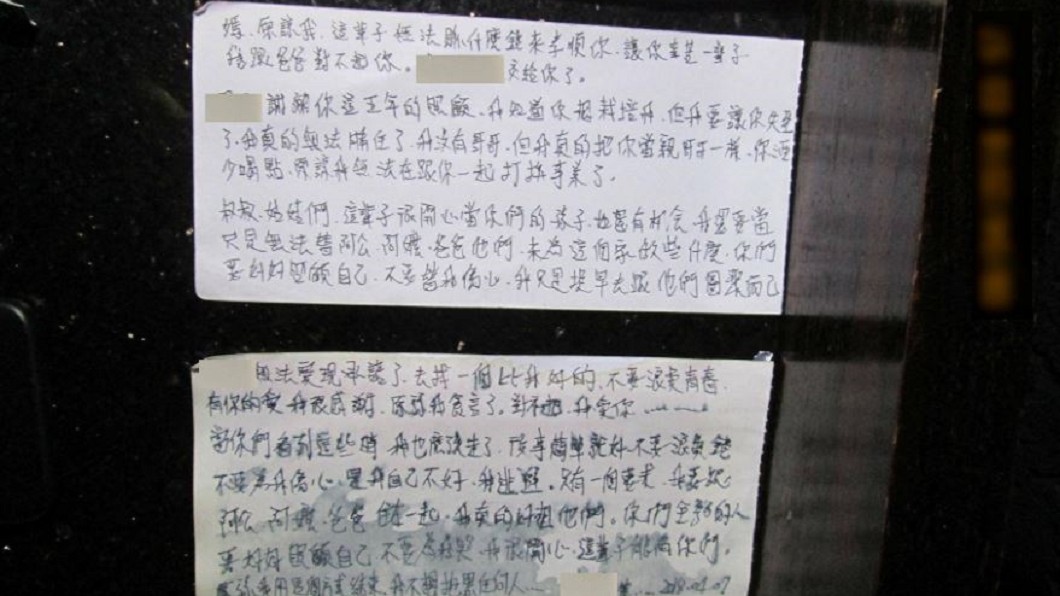 媽、原諒我,這輩子無法賺什麼錢來孝順你,讓你辛苦一輩子
我跟爸爸對不起你。交給你了。
謝謝你這五年的照顧,我知道你想栽培我,但我要讓你失望
了,我真的無法勝任了,我沒有哥哥,但我真的把你當親哥哥一樣,你酒
少喝點,原諒我無法在跟你一起打拼事業了。
叔叔、姑姑們,這輩子很開心當你們的孩子,如還有機會,我還要當
只是無法替阿公、阿嬤、爸爸他們,來為這個家做些什麼,你們
要好好照顧自己,不要替我傷心,我只是提早去跟他們團聚而已
無法實現承諾了,去找一個比我好的,不要浪費青春,
有你的愛我很感謝,原諒我食言了。對不起,我愛你
當你們看到這些時,我也應該走了,後事簡單就好不要浪費錢
不要為我傷心,是我自己不好,我逃避。只有一個要求,我要跟
阿公、阿嬤、爸爸 在一起,我真的好想他們。你們全部的人
要好好照顧自己 不要為我哭,我很開心,這輩子能有你們。
用這個方式結束,我不想拖累任何人....